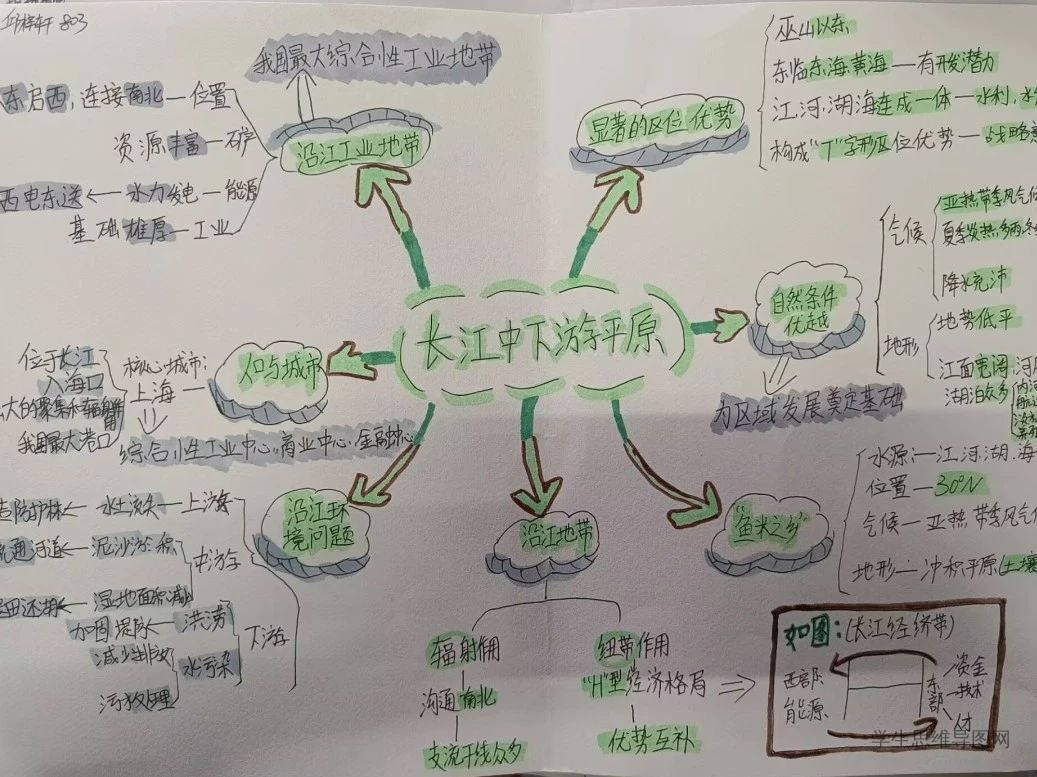 803
长江中下游平原
我国最大综合性工业地带
沿江工业地带
东启西,连接南北—位置
资源丰富—矿
西电东送←水力发电—能源
基础雄厚—工业
显著的区位优势
巫山以东
东临东海黄海—有开发潜力
江、河、湖、海连成一体—水利、水
构成"T"字形区位优势—战略意
自然条件
优越
为区域发展奠定基础
气候
亚热带季风气候
夏季炎热多雨,冬
降水充沛
地形
地势低平
江面宽阔
湖泊众多
人口与城市
核心城市:
上海
位于长江
入海口
我国最大港口
综合性工业中心、商业中心、金融中心
沿江环
境问题
造防护林←水土流失—上游
疏通河道←泥沙淤积
中游
退田还湖←湿地面积减少
加固堤防—洪涝
下游
减少排放
水污染
污水处理
沿江地带
辐射作用
沟通南北
支流干线众多
纽带作用
"H"型经济格局
优势互补
"鱼米之乡"
水源:—江、河、湖、海
位置—30°N
气候—亚热带季风气候
地形—冲积平原(土壤
如图:(长江经济带)
西部:
能源
东部
资金
技术
人才
学生思维导图网